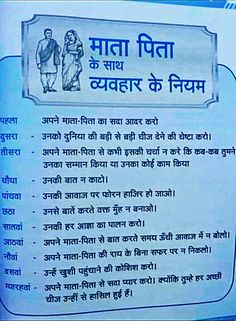 माता पिता
के साथ
व्यवहार के नियम
पहला - अपने माता-पिता का सदा आदर करो
दुसरा - उनको दुनिया की बड़ी से बड़ी चीज देने की चेष्टा करो।
तीसरा - अपने माता-पिता से कभी इसकी चर्चा न करे कि कब-कब तुमने
उनका सम्मान किया या उनका कोई काम किया
चौथा - उनकी बात न काटो।
पांचवा - उनकी आवाज पर फोरन हाजिर हो जाओ।
छठा - उनसे बातें करते वक्त मुँह न बनाओ।
सातवां - उनकी हर आज्ञा का पालन करो।
आठवां - अपने माता-पिता से बात करते समय ऊँची आवाज में न बोलो।
नौवां - अपने माता-पिता की राय के बिना सफर पर न निकलो।
दसवां - उन्हें खुशी पहुंचाने की कोशिश करो।
ग्यारहवां - अपने माता-पिता से सदा प्यार करो। क्योंकि तुम्हे हर अच्छी
चीज उन्हीं से हासिल हुई हैं।